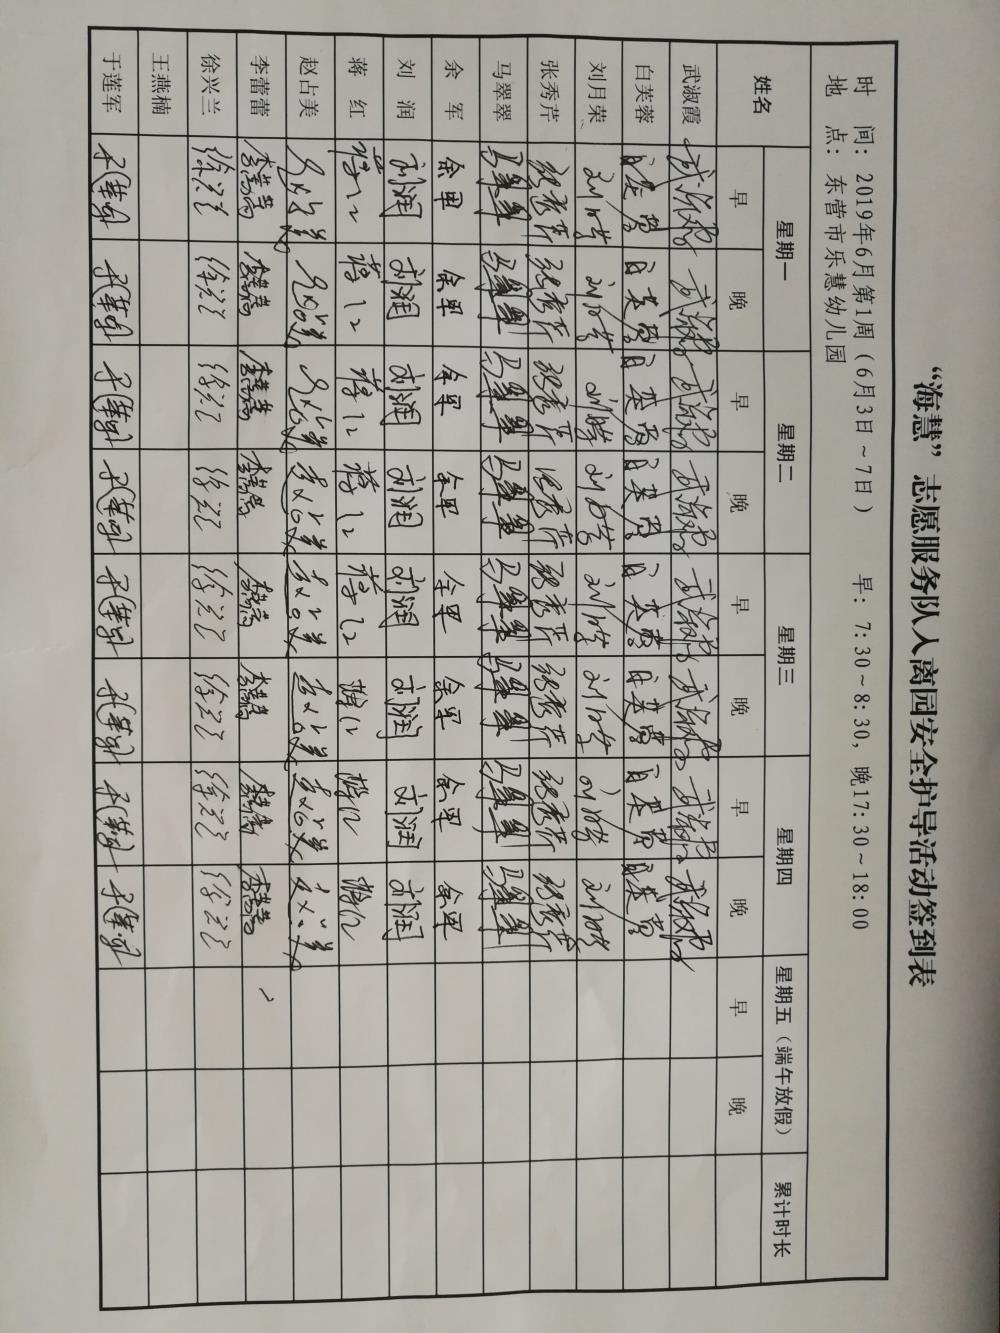 “海慧”志愿服务队入离园安全护导活动签到表
时 间：2019年6月第1周（6月3日～7日） 早：7:30～8:30，晚17:30～18:00
地 点：东营市乐慧幼儿园
姓名 星期一 星期二 星期三 星期四 星期五（端午放假） 累计时长
早 晚 早 晚 早 晚 早 晚 早 晚
武淑霞 武淑霞 武淑霞 武淑霞 武淑霞 武淑霞 武淑霞 武淑霞 武淑霞
白芙蓉 白芙蓉 白芙蓉 白芙蓉 白芙蓉 白芙蓉 白芙蓉 白芙蓉 白芙蓉
刘月荣 刘月荣 刘月荣 刘月荣 刘月荣 刘月荣 刘月荣 刘月荣 刘月荣
张秀芹 张秀芹 张秀芹 张秀芹 张秀芹 张秀芹 张秀芹 张秀芹 张秀芹
马翠翠 马翠翠 马翠翠 马翠翠 马翠翠 马翠翠 马翠翠 马翠翠 马翠翠
余 军 余军 余军 余军 余军 余军 余军 余军 余军
刘 润 刘润 刘润 刘润 刘润 刘润 刘润 刘润 刘润
蒋 红 蒋红 蒋红 蒋红 蒋红 蒋红 蒋红 蒋红 蒋红
赵占美 赵占美 赵占美 赵占美 赵占美 赵占美 赵占美 赵占美 赵占美
李蕾蕾 李蕾蕾 李蕾蕾 李蕾蕾 李蕾蕾 李蕾蕾 李蕾蕾 李蕾蕾 李蕾蕾
徐兴兰 徐兴兰 徐兴兰 徐兴兰 徐兴兰 徐兴兰 徐兴兰 徐兴兰 徐兴兰
王燕楠
于莲军 于莲军 于莲军 于莲军 于莲军 于莲军 于莲军 于莲军 于莲军